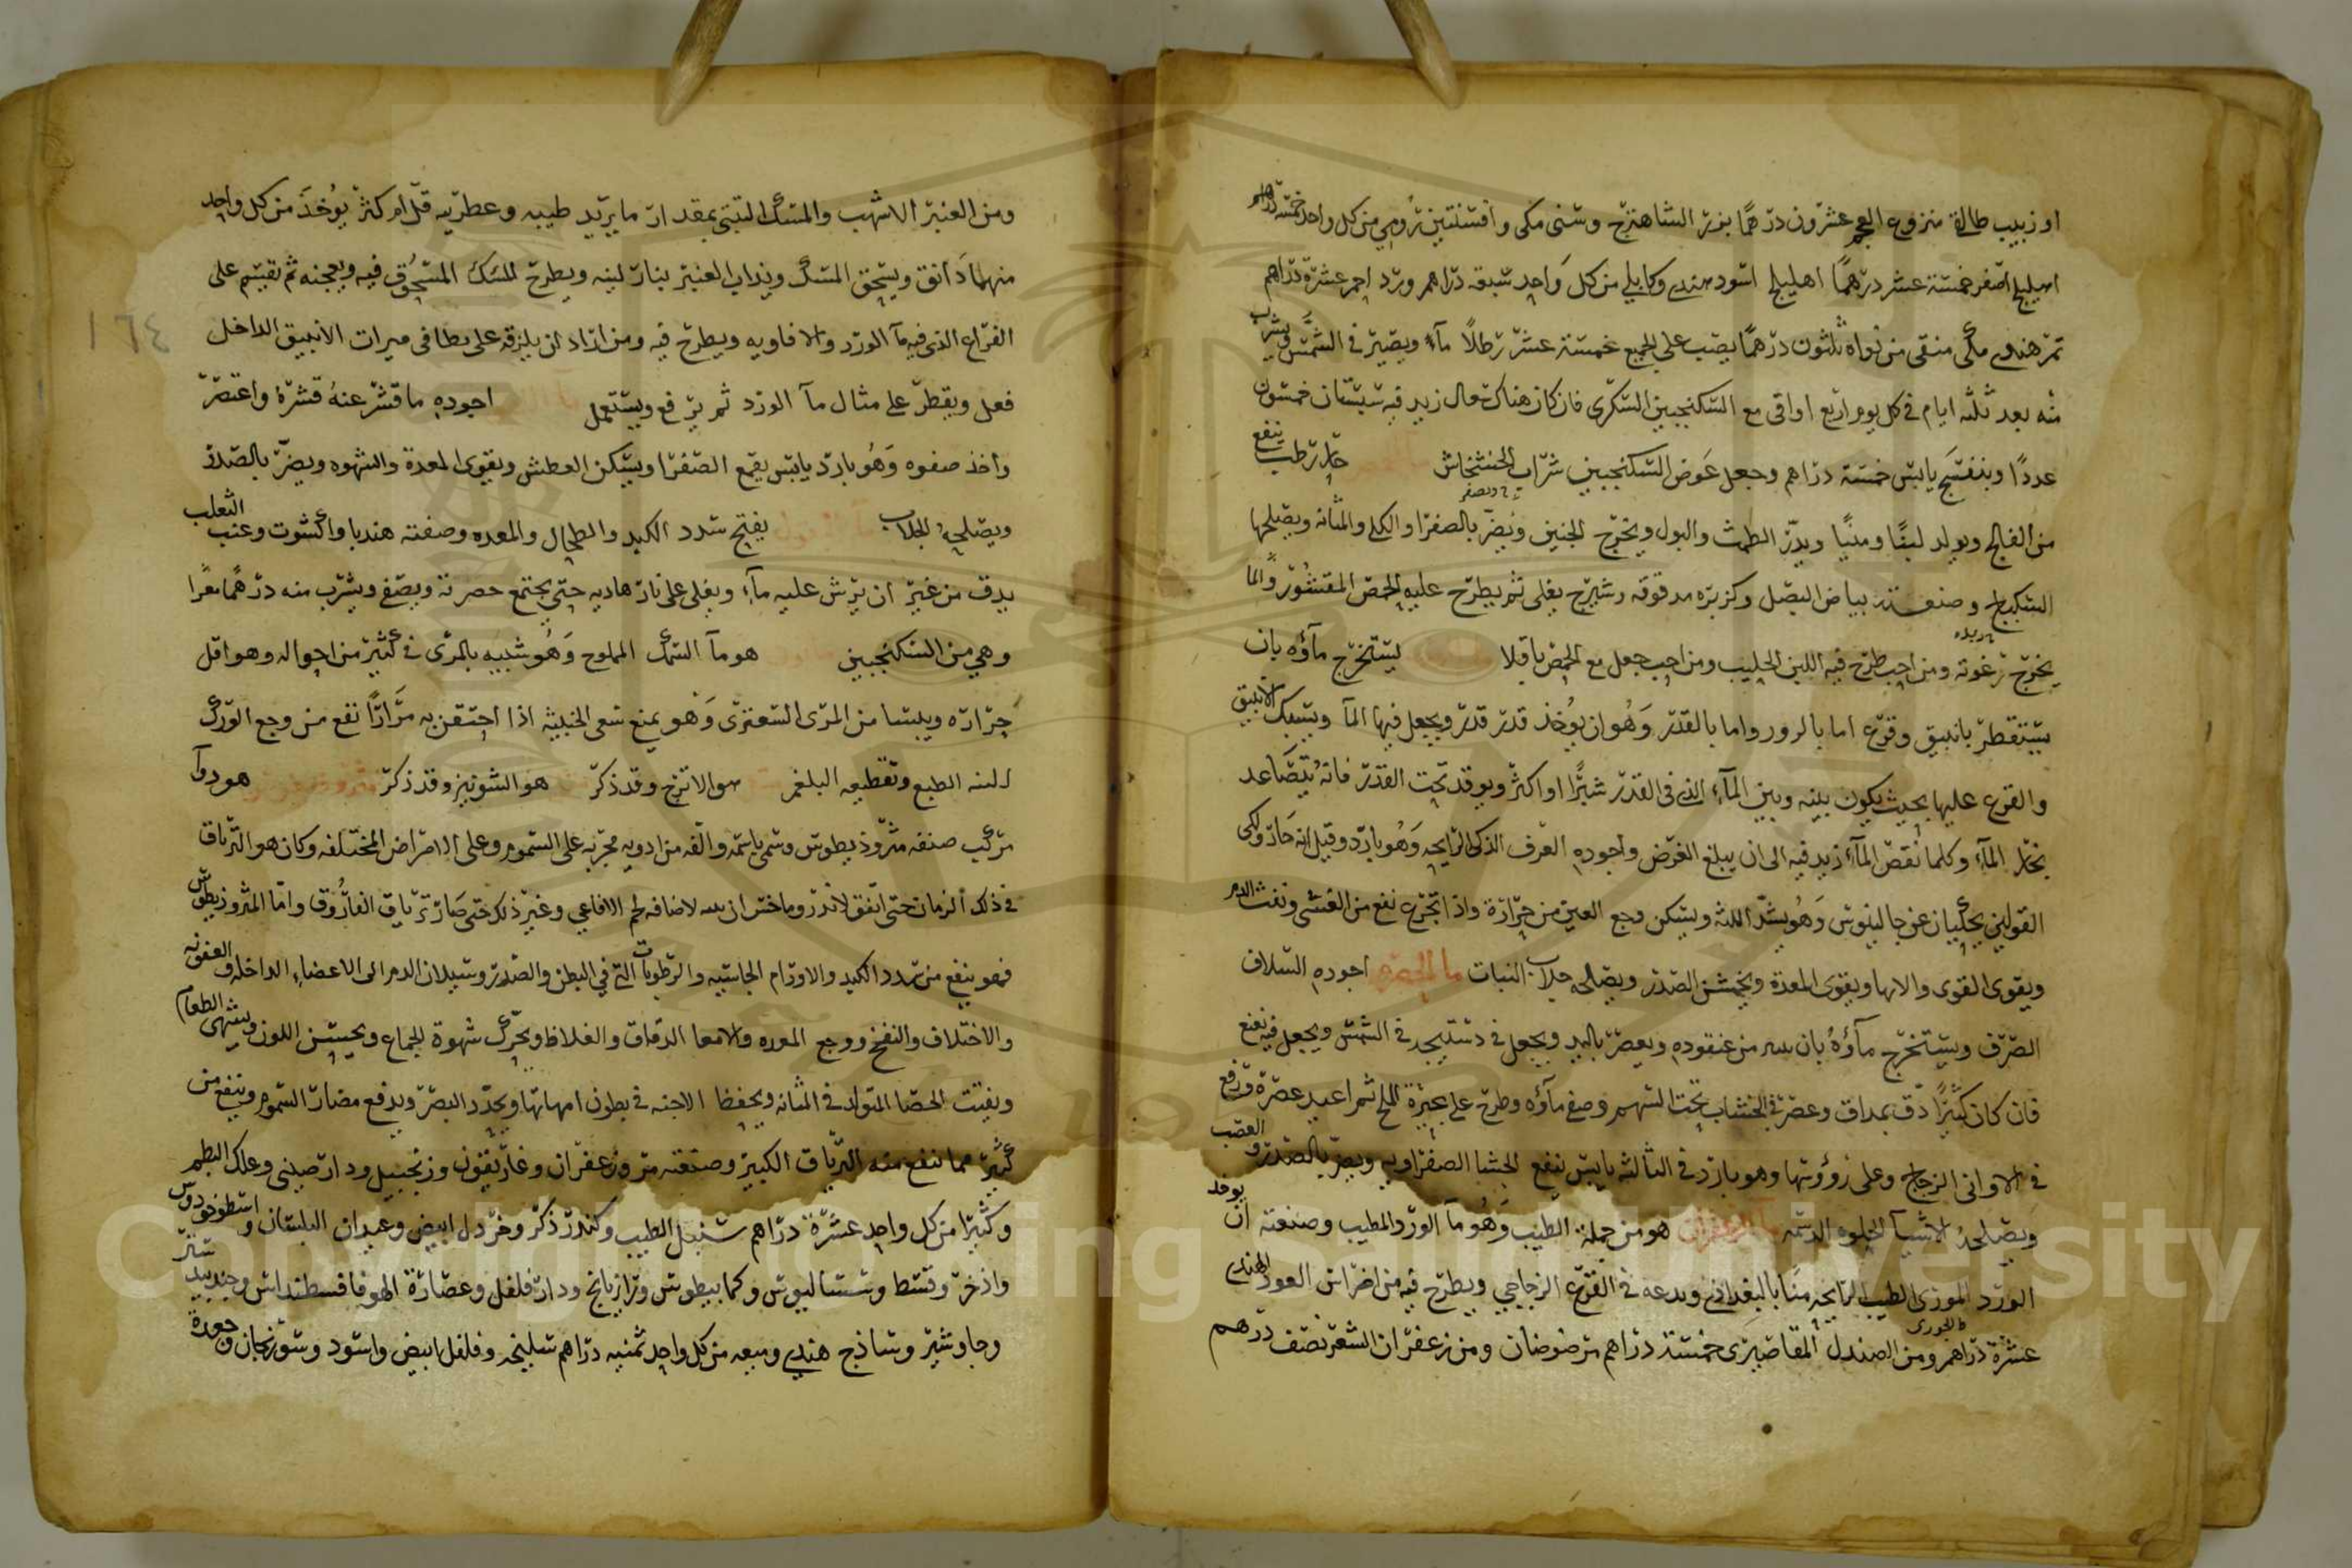 او زبيب طالقى منزوع العجم عشرون درهمًا بزر الشاهترج وسنى مكى وافسنتين رومي من كل واحد خمسة دراهم
اهليلج اصفر خمسة عشر درهمًا اهليلج اسود هندي وكابلي من كل واحد سبعة دراهم ورد احمر عشرة دراهم
تمر هندي مكى منقى من نواه ثلثون درهمًا يصب على الجميع خمسة عشر رطلاً مآء ويصير في الشمس ويشرب
منه بعد ثلثه ايام في كل يوم اربع اواقى مع السكنجبين السكرى فان كان هناك سعال زيد فيه سبستان خمسون
عددًا وبنفسج يابس خمسة دراهم وجعل عوض السكنجبين شراب الخشخاش حار رطب ينفع
من الفالج ويولد لبنًا ومنيًا ويدر الطمث والبول ويخرج الجنين ويضر بالصفرا والكلى والمثانه ويصلحها
السكباج وصنعته بياض البصل وكزبره مدقوقه وشيرج يغلى ثم يطرح عليه الحمص المقشور والما
يخرج رغوته ومن احب طرح فيه اللبن الحليب ومن احب جعل مع الحمص باقلا يستخرج مآؤه بان
يستقطر بانبيق وقرع اما بالرور واما بالقدر وهو ان يؤخذ قدر قدر ويجعل فيها المآ ويشبك الانبيق
والقرع عليها بحيث يكون بينه وبين المآء الذي في القدر شبرًا او اكثر ويوقد تحت القدر فانه يتصاعد
بخار المآء وكلما نقص المآء زيد فيه الى ان يبلغ الغرض واجوده العرف الذكى الرايحه وهو بارد وقيل انه حار ولكى
القولين يحكيان عن جالينوس وهو يشد اللثه ويسكن وجع العين من حرارة واذا تجرع نفع من الغشى ونفث الدم
ويقوى القوى والالها ويقوى المعدة ويخشن الصدر ويصلحه جلاب النبات ما الحصرم اجوده السلاف
الصرف ويستخرج مآؤه بان من عنقوده ويعصر باليد ويجعل في دستيجه في الشمس ويجعل فيه نعنع
فان كان كثيرًا دق بمداق وعصر في الخشاب تحت السهم وصفى مآؤه وطرح على عجيزة الملح ثم اعيد عصره ورفع
في الاوانى الزجاج وعلى رؤوسها وهو بارد في الثالثه يابس ينفع الحشا الصفراويه ويضر بالصدر والعصب
ويصلحه الاشيآ الحلوه الدسمه مآ الزعفران هو من جملة الطيب وهو مآ الورد المطيب وصنعته ان يوخذ
الورد الموزى الطيب الرايحه منًا بالبغدادى ويدعه في القرع الزجاجي ويطرح فيه من اضراس العود الهندي
عشرة دراهم ومن الصندل المقاصيرى خمسة دراهم مرضوضان ومن زعفران الشعر نصف درهم
ومن العنبر الاشهب والمسك التبتى بمقدار ما يريد طيبه وعطريه قل ام كثر يؤخذ من كل واحد
منهما دانق ويسحق المسك ويذاب العنبر بنار لينه ويطرح المسك المسحوق فيه ويعجنه ثم تقسم على
القراع الذي فيه مآ الورد والافاويه ويطرح فيه ومن اراد ان يلزقه على بطانى ميرات الانبيق الداخل
فعل ويقطر على مثال مآ الورد ثم يرفع ويستعمل اجوده ما قشر عنه قشره واعتصر
واخذ صفوه وهو بارد يابس يقمع الصفرا ويسكن العطش ويقوى المعدة والشهوه ويضر بالصدر
ويصلحه الجلاب يفتح سدد الكبد والطحال والمعده وصفته هندبا واكشوت وعنب الثعلب
يدق من غير ان يرش عليه مآء ويغلى على نار هاديه حتى يجتمع خصرته ويصفى ويشرب منه درهما مغرا
وهي من السكنجبين هو مآ السمك المملوح وهو شبيه بالمرى في كثير من احواله وهو اقل
حرارة ويبسا من المرى الشعيرى وهو يمنع سعى الخبيثه اذا احتقن به مرارًا نفع من وجع الورك
لليينه الطبع وتقطيعه البلغم هو الاترج وقد ذكر هو الشونيز وقد ذكر مثروذيطوس هو دوآ
مركب صنفه مثروذيطوس وسمى باسمه والفه من ادويه مجربه على السموم وعلى الامراض المختلفه وكان هو الترياق
في ذلك الزمان حتى اتفق لاندروماخس ان لاضافه لحم الافاعي وغير ذلك حتى صار ترياق الفاروق واما المثروذيطوس
فهو ينفع من سدد الكبد والاورام الجاسيه والرطوبات التي في البطن والصدر وسيلان الدم الى الاعضاء الداخله والعفونه
والاختلاف والنفخ ووجع المعده والامعا الدقاق والغلاظ ويحرك شهوة الجماع ويحسن اللون ويشهى الطعام
ويفتت الحصا المتولد في المثانه ويحفظ الاجنه في بطون امهاتها ويحدد البصر ويدفع مضار السموم وينفع من
كثير مما ينفع منه الترياق الكبير وصنعته مر وزعفران وغاريقون وزنجبيل ودارصينى وعلك البطم
وكثيرا من كل واحد عشرة دراهم سنبل الطيب وكندر ذكر وخردل ابيض وعيدان البلسان واسطوخودوس
واذخر وقسط وسساليوس وكمابيطوس ورازيانج ودارفلفل وعصارة الهوفاقسطنداس وجندبيدستر
وجاوشير وساذج هندي وميعه من كل واحد ثمنيه دراهم سليخه وفلفل ابيض واسود وسورنجان وجعدة
١٦٤